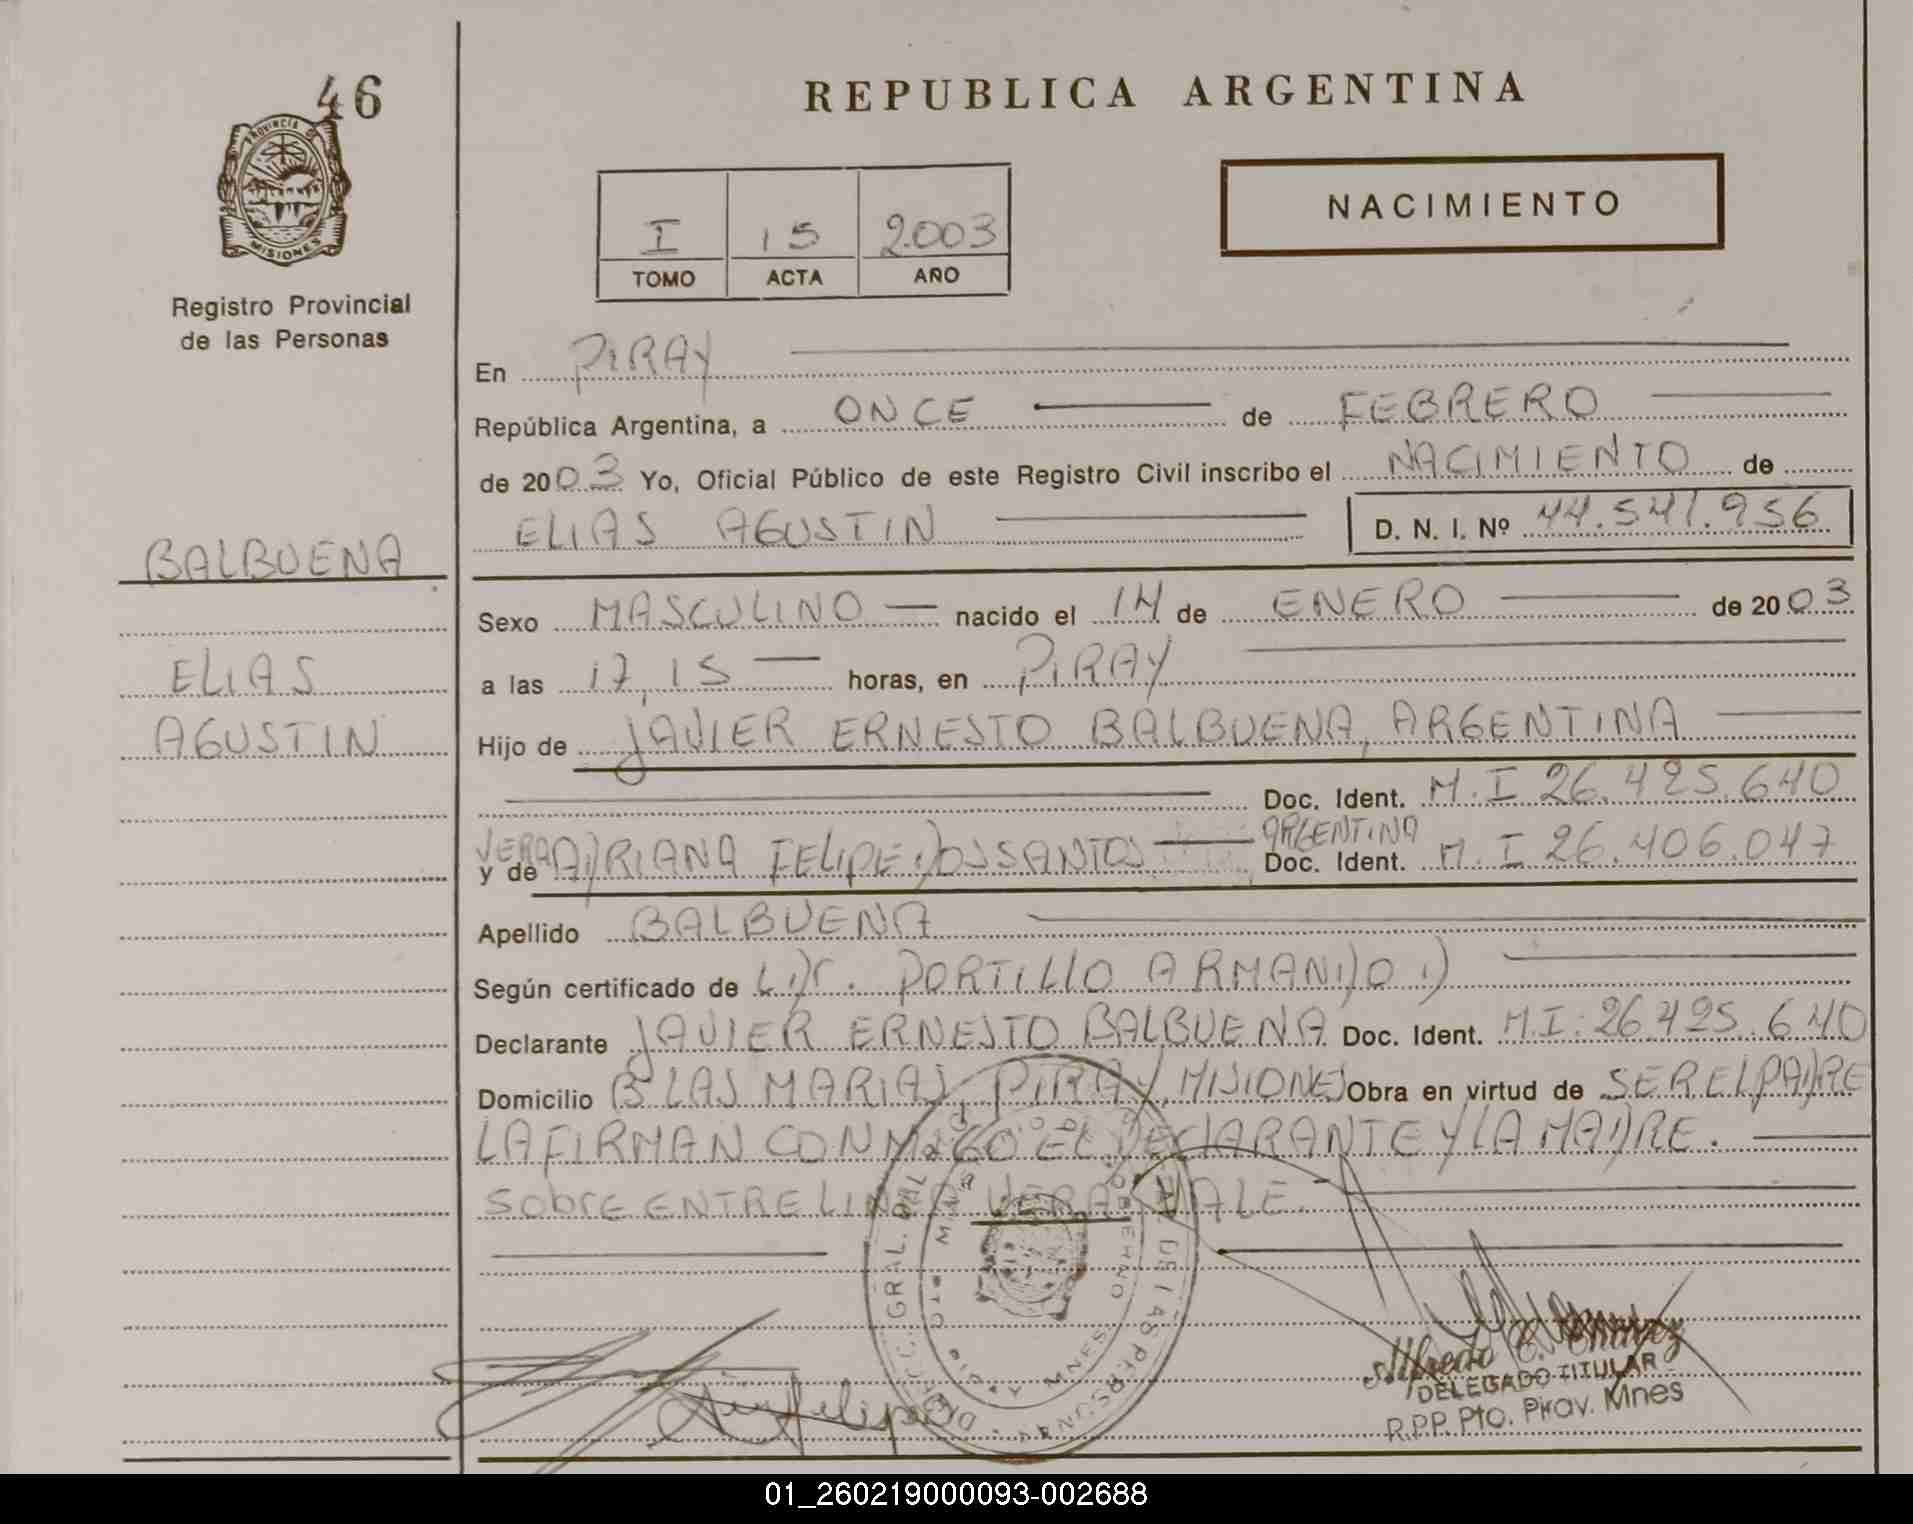 46
PROVINCIA DE
MISIONES
Registro Provincial
de las Personas
BALBUENA
ELIAS
AGUSTIN
REPUBLICA ARGENTINA
NACIMIENTO
I 15 2.003
TOMO ACTA AÑO
En PIRAY
República Argentina, a ONCE de FEBRERO
de 2003 Yo, Oficial Público de este Registro Civil inscribo el NACIMIENTO de
ELIAS AGUSTIN D. N. I. Nº 44.541.956
Sexo MASCULINO nacido el 14 de ENERO de 2003
a las 17,15 horas, en PIRAY
Hijo de JAVIER ERNESTO BALBUENA, ARGENTINA
Doc. Ident. M.I 26.425.640
VERA ARGENTINA
y de ADRIANA FELIPE DOSSANTOS Doc. Ident. M.I 26.406.047
Apellido BALBUENA
Según certificado de L Dr. PORTILLO ARMANDO D
Declarante JAVIER ERNESTO BALBUENA Doc. Ident. M.I: 26.425.640
Domicilio B LAS MARIAS, PIRAY, MISIONES Obra en virtud de SER EL PADRE
LA FIRMAN CONMIGO EL DECLARANTE Y LA MADRE.
SObrE ENTRE LINEA VERA VALE.
DIRECC. GRAL. DE LAS PERSONAS
DELEGADO TITULAR
R.P.P. Pto. Piray. Mnes
01_260219000093-002688